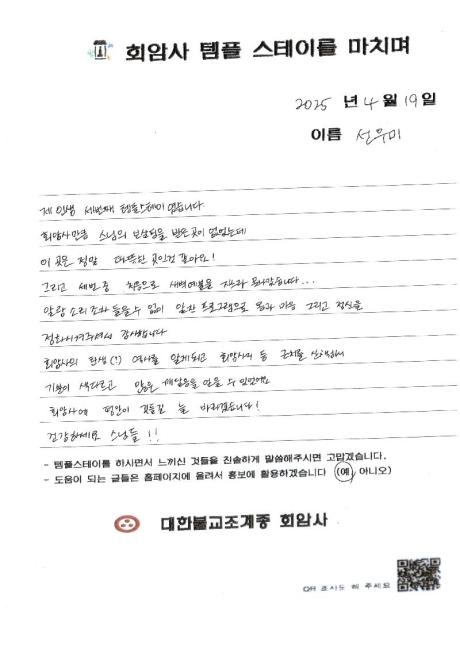 회암사 템플 스테이를 마치며
2025 년 4 월 19 일
이름 선우미
제 인생 세번째 템플스테이 였습니다
회암사만큼 스님의 보살핌을 받은곳이 없었는데
이 곳은 정말 따뜻한 곳인것 같아요!
그리고 세번 중 처음으로 새벽예불을 자느라 못나갔습니다...
알람 소리조차 들을수 없이 알찬 프로그램으로 몸과 마음 그리고 정신을
정화시켜주셔서 감사합니다
회암사의 탄생(?) 역사를 알게되고 회암사지 등 근처를 산책하며
기분이 색다르고 많은 깨달음을 얻을 수 있었네요
회암사에 평안이 깃들길 늘 바라겠습니다!
건강하세요 스님들!!
- 템플스테이를 하시면서 느끼신 것들을 진솔하게 말씀해주시면 고맙겠습니다.
- 도움이 되는 글들은 홈페이지에 올려서 홍보에 활용하겠습니다 (예, 아니오)
대한불교조계종 회암사
QR 조사도 해 주세요